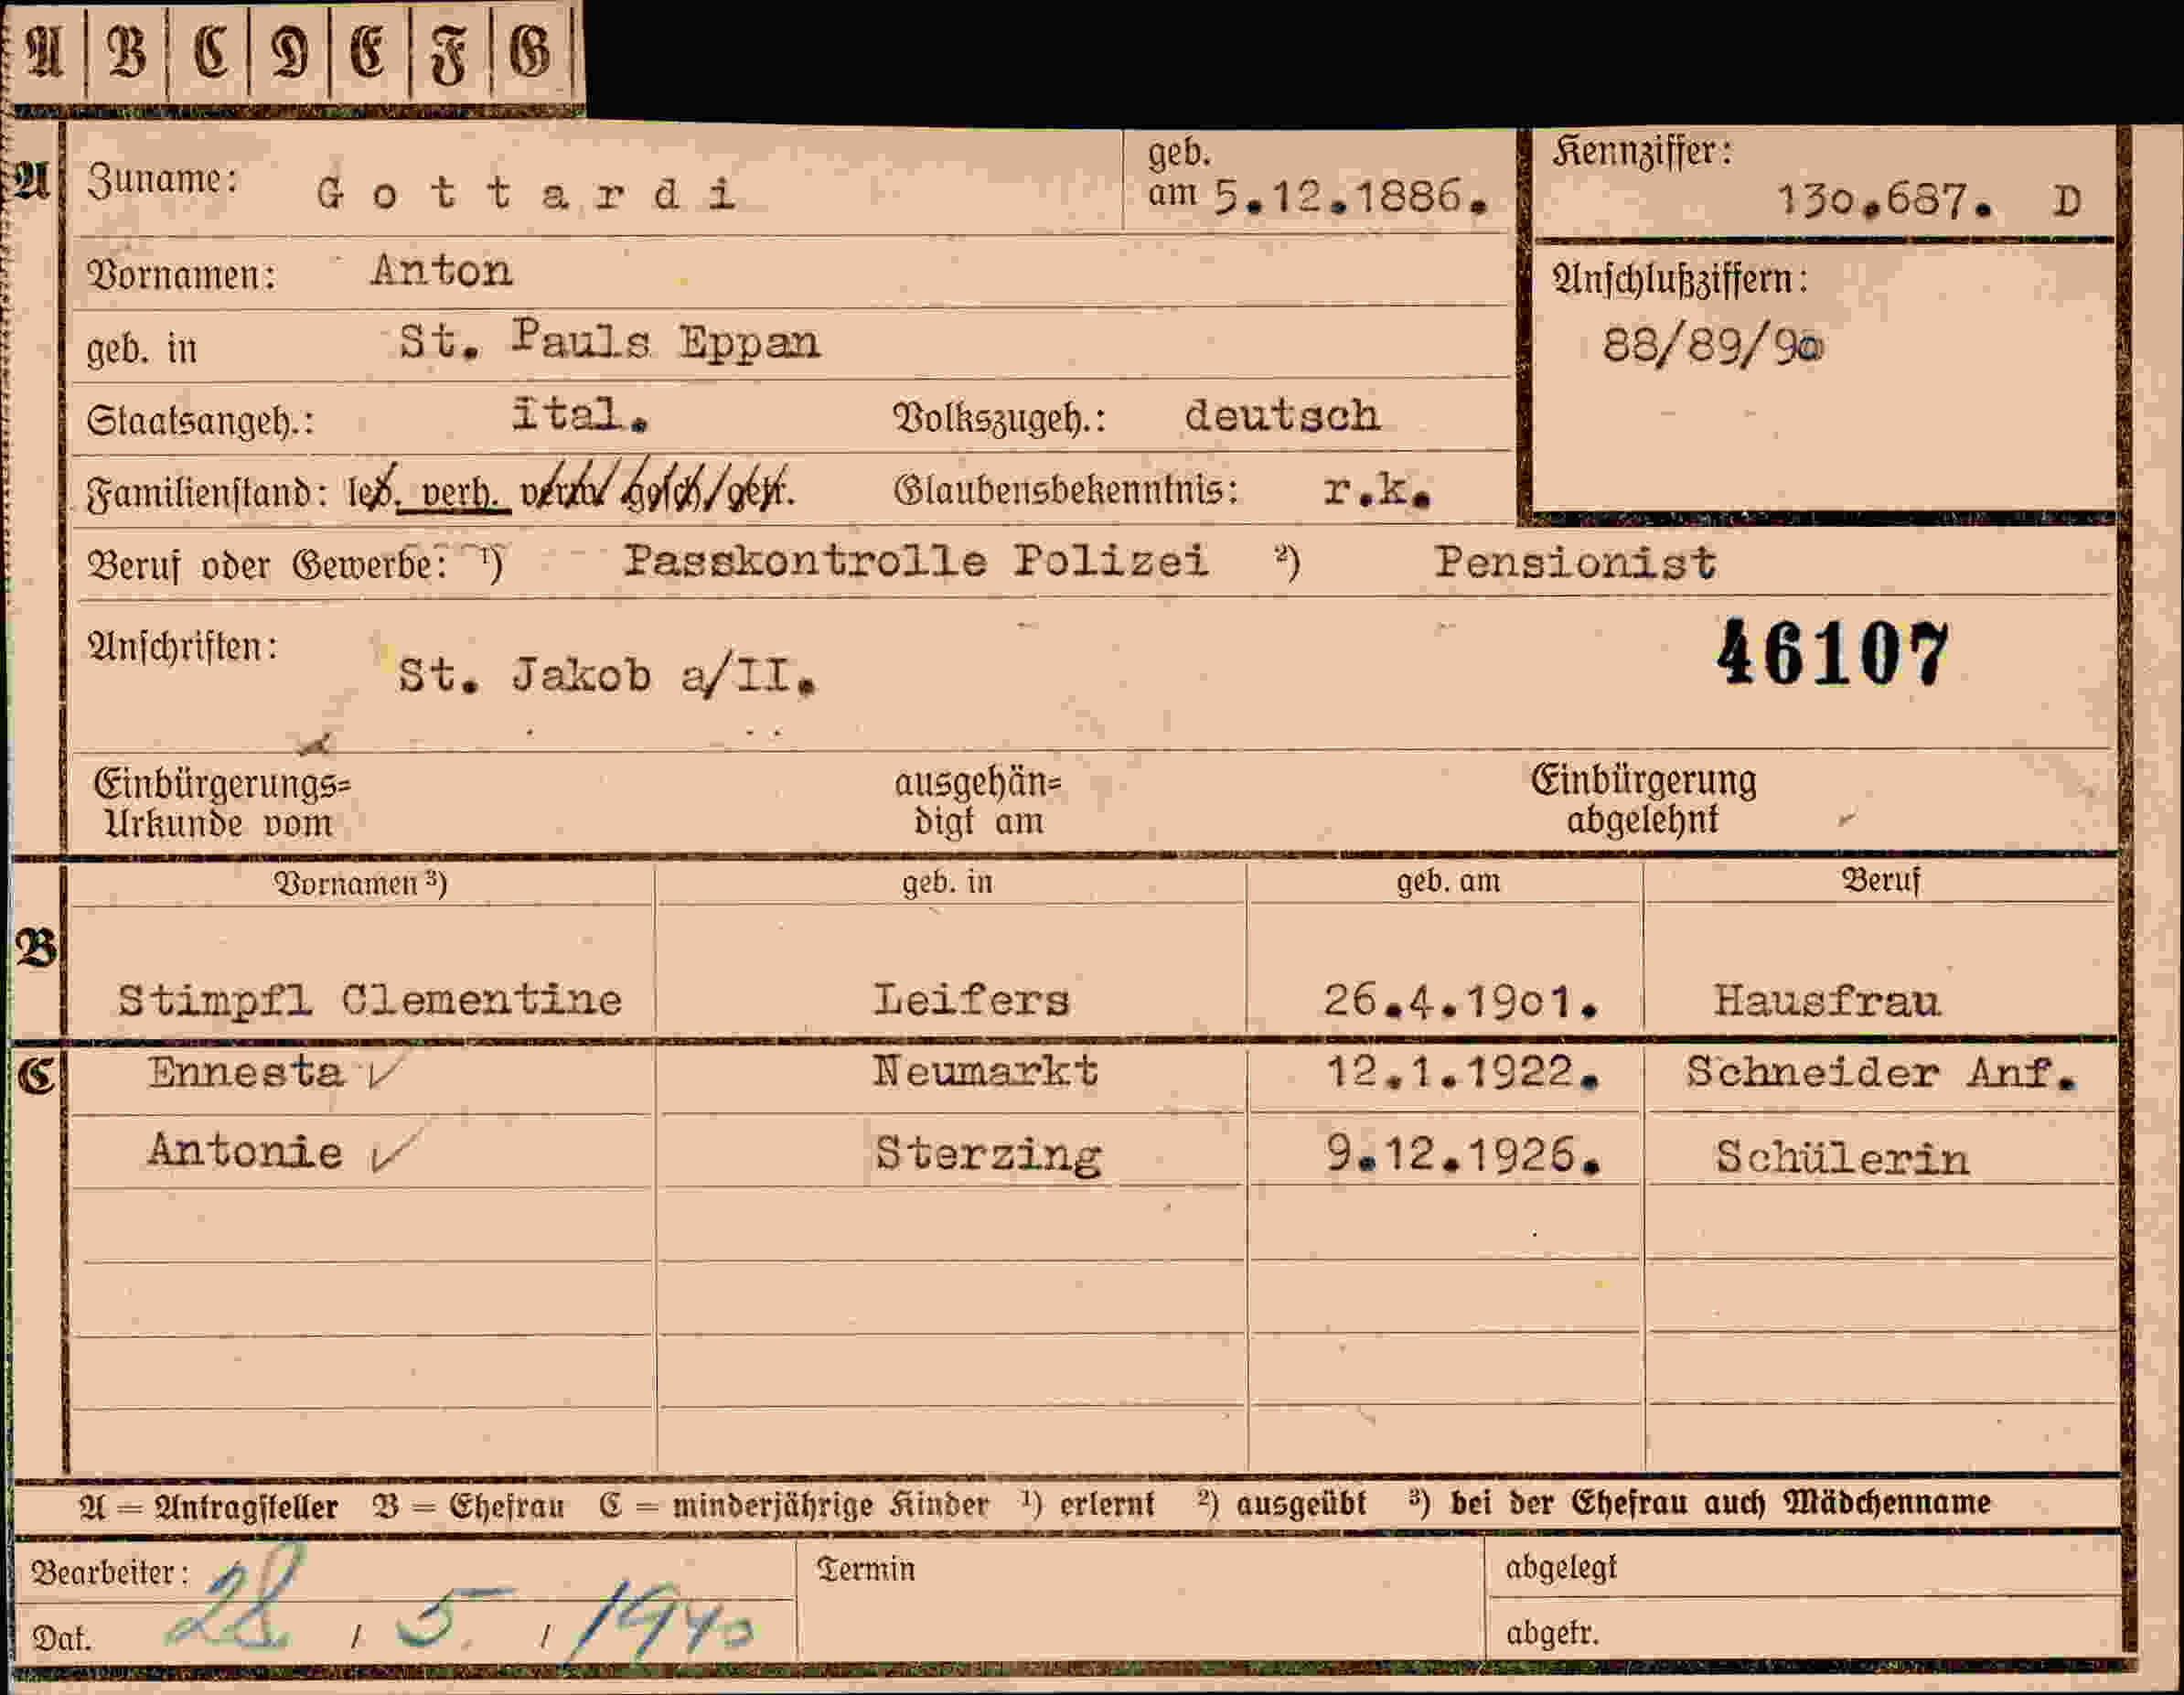 A B C D E F G
A Zuname: Gottardi geb. am 5.12.1886. Kennziffer: 130.687. D
Vornamen: Anton Anschlußziffern:
geb. in St. Pauls Eppan 88/89/90
Staatsangeh.: ital. Volkszugeh.: deutsch
Familienstand: led. verh. verw. gesch. getr. Glaubensbekenntnis: r.k.
Beruf oder Gewerbe: ¹) Passkontrolle Polizei ²) Pensionist
Anschriften: St. Jakob a/II. 46107
Einbürgerungs= ausgehän= Einbürgerung
Urkunde vom digt am abgelehnt
Vornamen ³) geb. in geb. am Beruf
B
Stimpfl Clementine Leifers 26.4.1901. Hausfrau
C Ennesta Neumarkt 12.1.1922. Schneider Anf.
Antonie Sterzing 9.12.1926. Schülerin
A = Antragsteller B = Ehefrau C = minderjährige Kinder ¹) erlernt ²) ausgeübt ³) bei der Ehefrau auch Mädchenname
Bearbeiter: Termin abgelegt
Dat. 28 / 5. / 1940 abgetr.